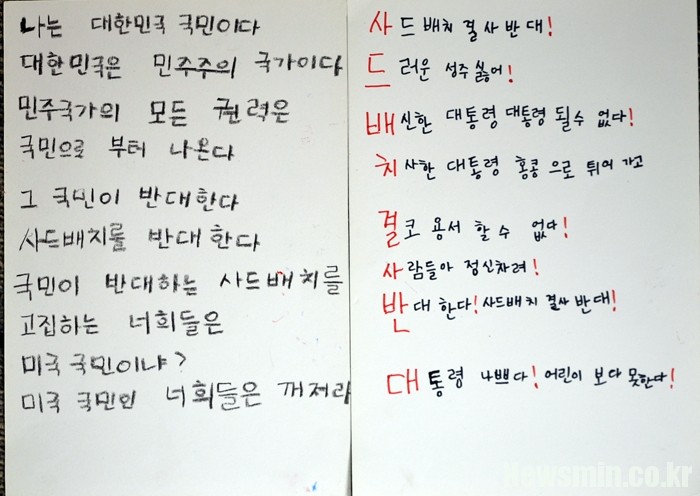 나는 대한민국 국민이다
대한민국은 민주주의 국가이다
민주국가의 모든 권력은
국민으로 부터 나온다
그 국민이 반대한다
사드배치를 반대한다
국민이 반대하는 사드배치를
고집하는 너희들은
미국 국민이냐?
미국 국민인 너희들은 꺼져라
사드배치 결사반대!
드러운 성주 싫어!
배신한 대통령 대통령 될수 없다!
치사한 대통령 홍콩으로 튀어 가고
결코 용서 할 수 없다!
사람들아 정신차려!
반대 한다! 사드배치 결사반대!
대통령 나쁘다! 어린이 보다 못한다!
Newsmin.co.kr